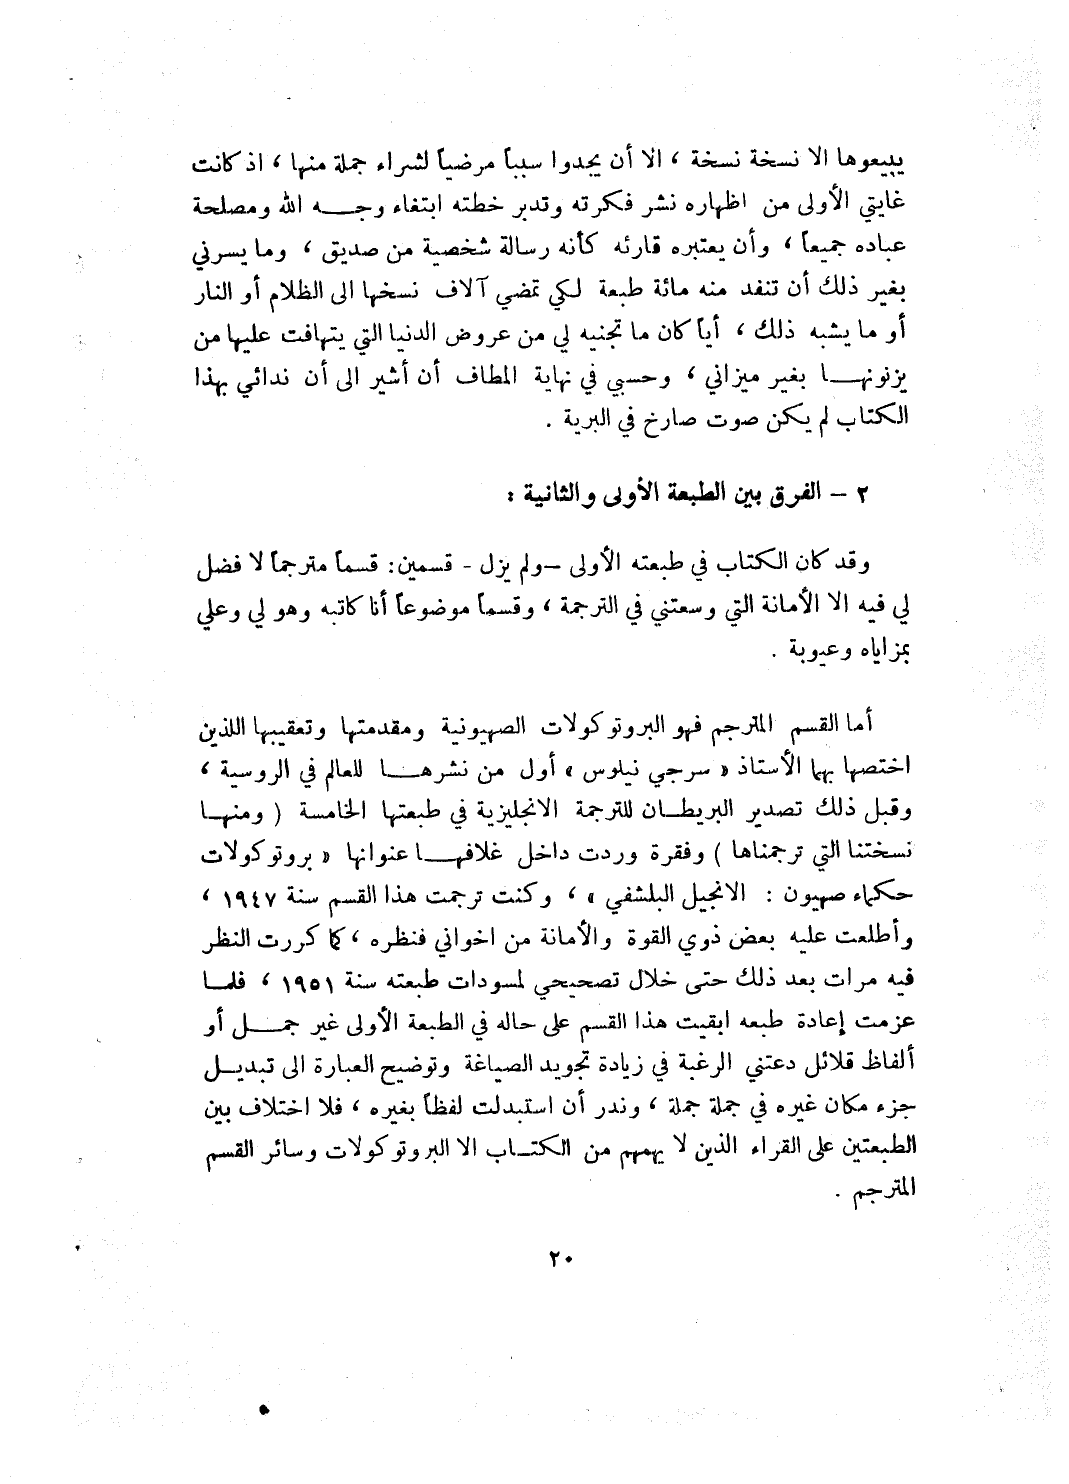 يبيعوها الا نسخة نسخة ، الا أن يجدوا سبباً مرضياً لشراء جملة منها ، اذ كانت
غايتي الأولى من اظهاره نشر فكرته وتدبر خطته ابتغاء وجـــه الله ومصلحة
عباده جميعاً ، وأن يعتبره قارئه كأنه رسالة شخصية من صديق ، وما يسرني
بغير ذلك أن تنفد منه مائة طبعة لكي تمضي آلاف نسخها الى الظلام أو النار
أو ما يشبه ذلك ، أياً كان ما تجنيه لي من عروض الدنيا التي يتهافت عليها من
يزنونهـــا بغير ميزاني ، وحسبي في نهاية المطاف أن أشير الى أن ندائي بهذا
الكتاب لم يكن صوت صارخ في البرية .
٢ – الفرق بين الطبعة الأولى والثانية :
وقد كان الكتاب في طبعته الأولى –ولم يزل - قسمين: قسماً مترجماً لا فضل
لي فيه الا الأمانة التي وسعتني في الترجمة ، وقسماً موضوعاً أنا كاتبه وهو لي وعلي
بمزاياه وعيوبة .
أما القسم المترجم فهو البروتوكولات الصهيونية ومقدمتها وتعقيبها اللذين
اختصها بهما الأستاذ « سرجي نيلوس » أول من نشرهـــا للعالم في الروسية ،
وقبل ذلك تصدير البريطـان للترجمة الانجليزية في طبعتها الخامسة ( ومنهـا
نسختنا التي ترجمناها ) وفقرة وردت داخل غلافهـــا عنوانها « بروتوكولات
حكماء صهيون : الانجيل البلشفي » ، وكنت ترجمت هذا القسم سنة ١٩٤٧ ،
وأطلعت عليه بعض ذوي القوة والأمانة من اخواني فنظره ، كما كررت النظر
فيه مرات بعد ذلك حتى خلال تصحيحي لمسودات طبعته سنة ١٩٥١ ، فلمـا
عزمت إعادة طبعه ابقيت هذا القسم على حاله في الطبعة الأولى غير جمـــل أو
ألفاظ قلائل دعتني الرغبة في زيادة تجويد الصياغة وتوضيح العبارة الى تبديـل
جزء مكان غيره في جملة جملة ، وندر أن استبدلت لفظاً بغيره ، فلا اختلاف بين
الطبعتين على القراء الذين لا يهمهم من الكتـاب الا البروتوكولات وسائر القسم
المترجم .
٢٠